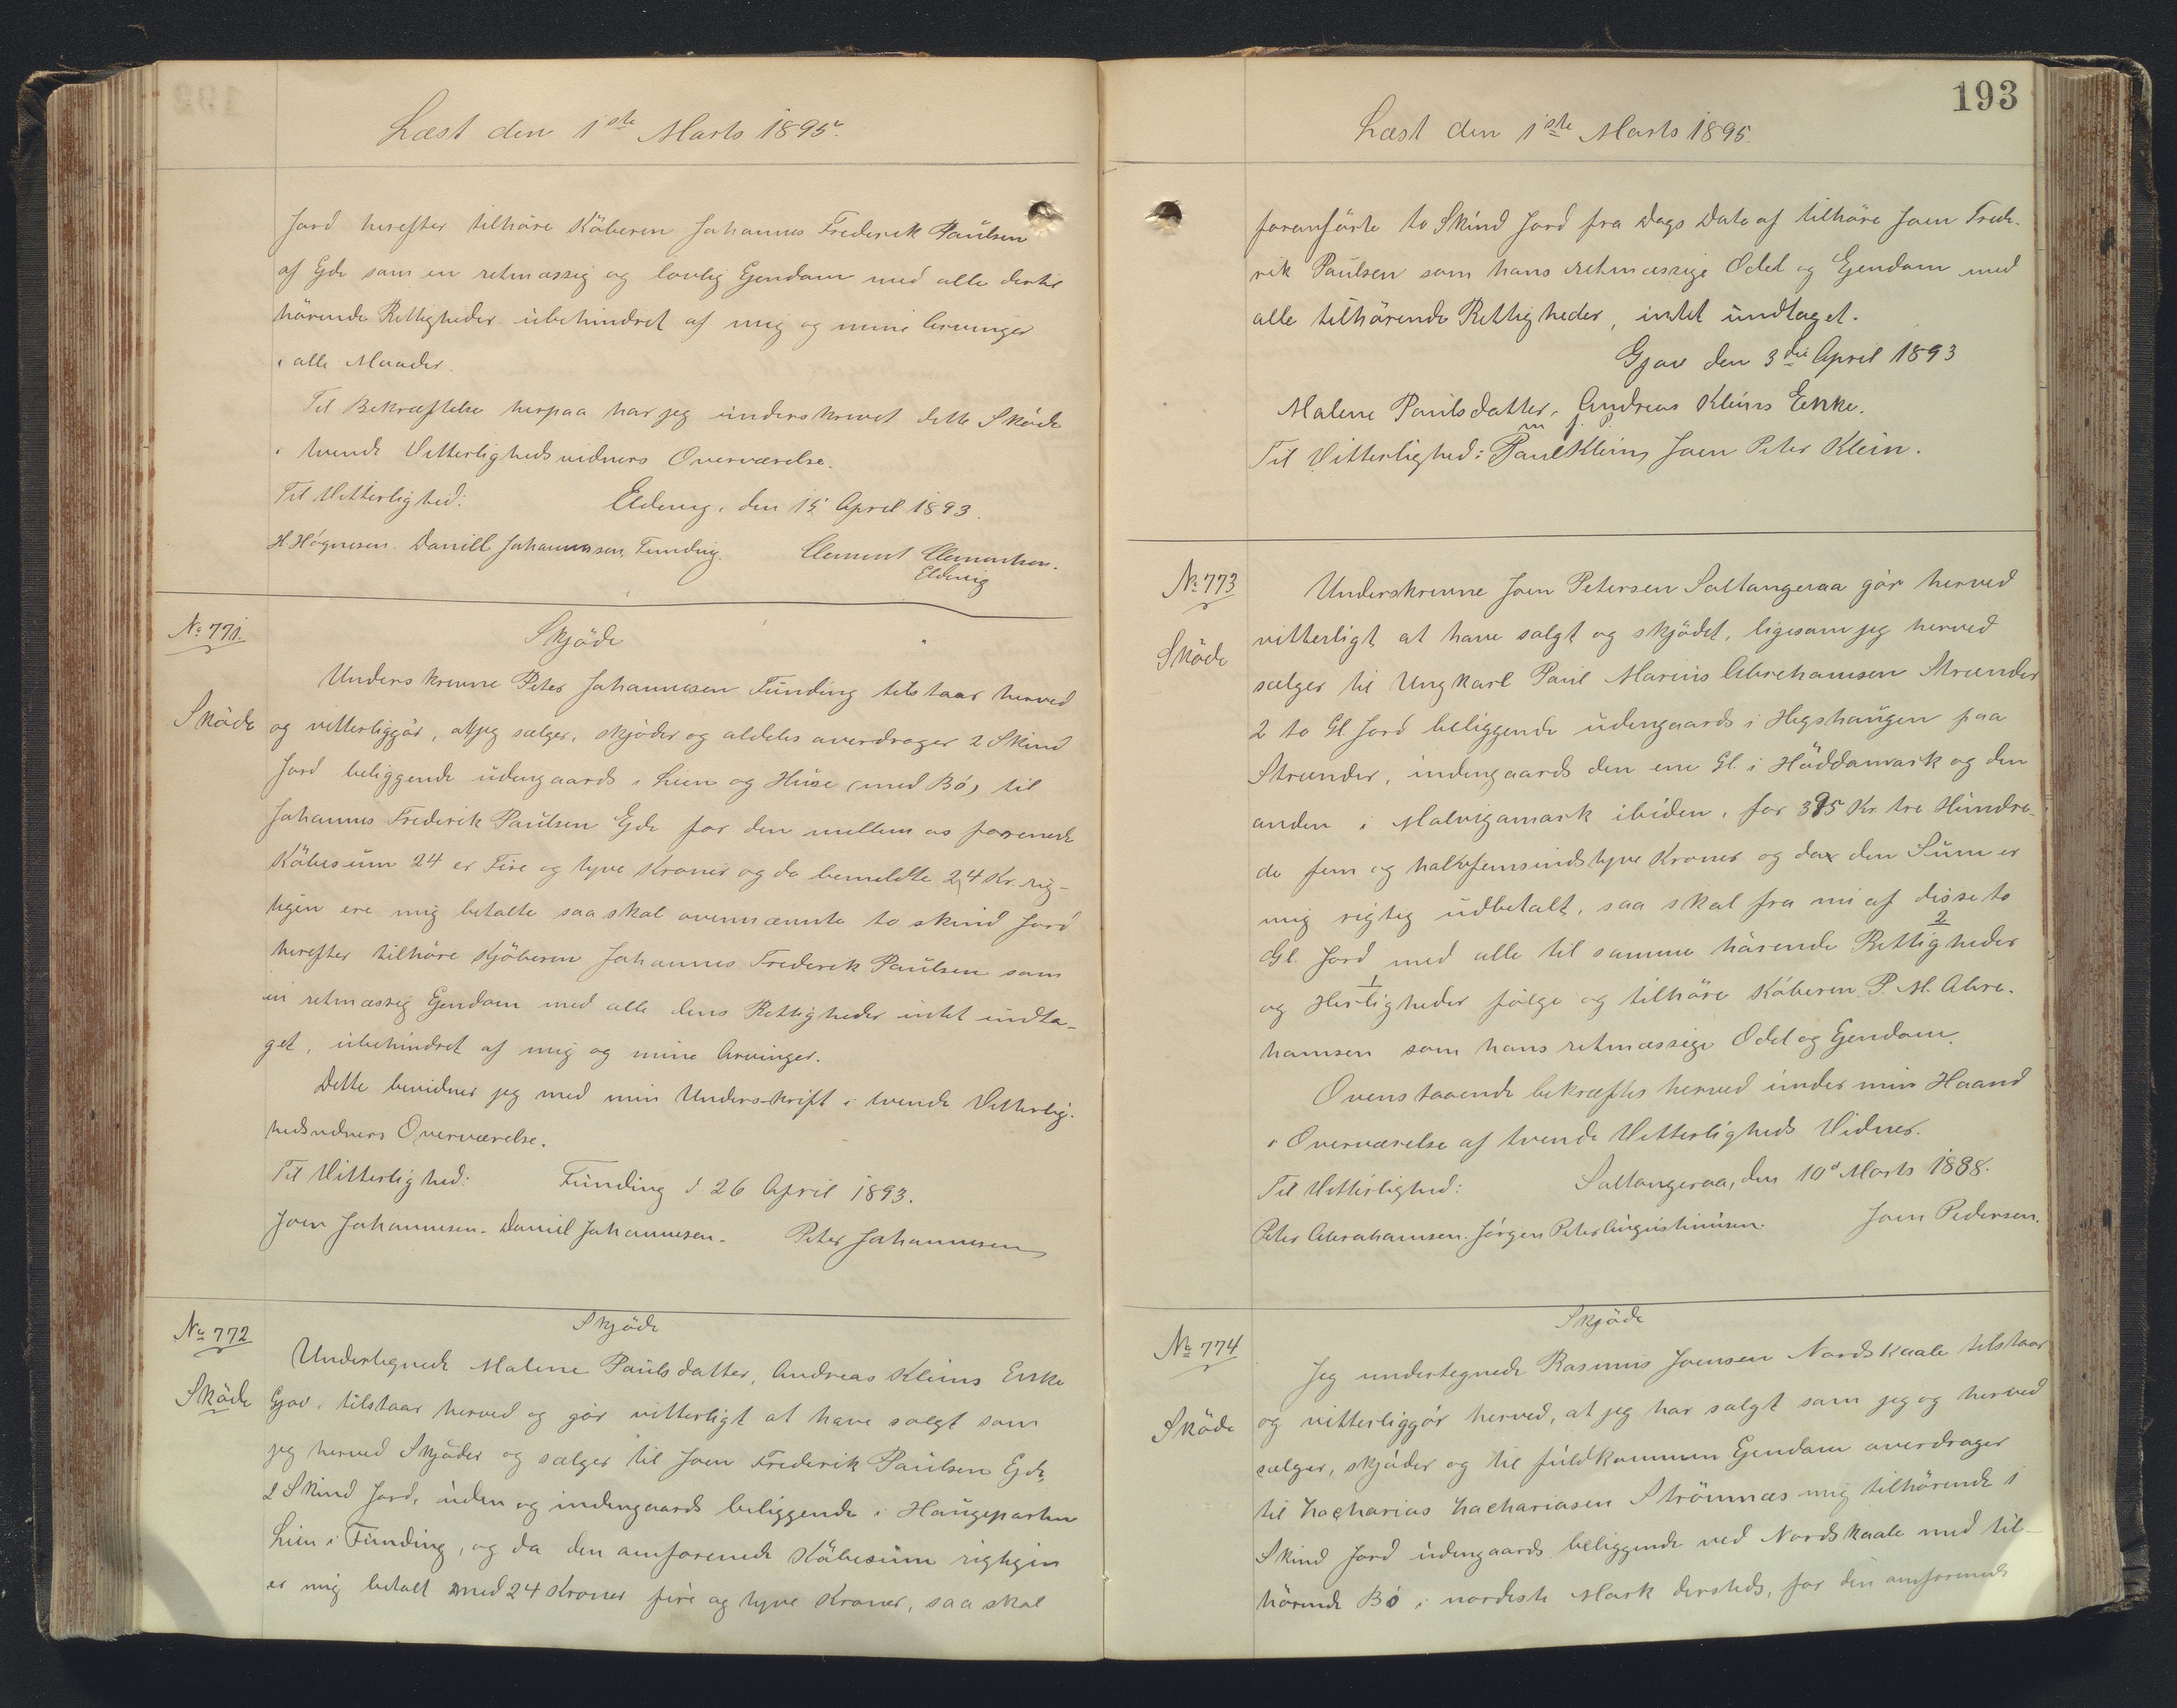 Læst den 1ste Marts 1895.
Jord herefter tilhöre Köberen Johannes Frederik Paulsen
af Ejde som en retmæssig og lovlig Ejendom med alle dertil
hörende Rettigheder ubehindret af mig og mine Arvinger
i alle Maader.
Til Bekræftelse herpaa har jeg underskrevet dette Sköde
i tvende Vitterlighedsvidners Overværelse.
Til Vitterlighed: Eldevig, den 15 April 1893.
H. Högnesen. Daniel Johannesen, Funding. Clement Clementsen.
Eldevig
No 771.
Skjöde
Sköde
Underskrevne Peter Johannesen Funding tilstaar herved
og vitterliggör, at jeg sælger, skjöder og aldeles overdrager 2 Skind
Jord beliggende udengaards i Lien og Huse (med Bö) til
Johannes Frederik Paulsen Ejde for den mellem os forenede
Köbesum 24 er Fire og tyve Kroner og da bemeldte 24 Kr. rig-
tigen ere mig betalte saa skal ovennævnte to skind Jord
herefter tilhöre Kjöberen Johannes Frederik Paulsen som
en retmæssig Ejendom med alle dens Rettigheder intet undta-
get, ubehindret af mig og mine Arvinger.
Dette bevidner jeg med min Underskrift i tvende Vitterlig-
hedsvidners Overværelse.
Til Vitterlighed: Funding d 26 April 1893.
Joen Johannesen. Daniel Johannesen. Peter Johannesen
No 772
Skjöde
Sköde
Undertegnede Malene Paulsdatter, Andreas Kleins Enke
Gjov, tilstaar herved og gör vitterligt at have solgt som
jeg herved Skjöder og sælger til Joen Frederik Paulsen Ejde,
2 Skind Jord, uden og indengaards beliggende i Haugeparten
Lien i Funding, og da den omforenede Köbesum rigtigen
er mig betalt med 24 Kroner fire og tyve Kroner, saa skal
193
Læst den 1ste Marts 1895.
foranförte to Skind Jord fra Dags Dato af tilhöre Joen Frede-
rik Paulsen som hans retmæssige Odel og Ejendom med
alle tilhörende Rettigheder, intet undtaget.
Gjov den 3die April 1893
Malene Paulsdatter, Andreas Kleins Enke.
m. f. P.
Til Vitterlighed: Paul Klein, Joen Peter Klein.
No 773
Sköde
Underskrevne Joen Petersen Saltangeraa gör herved
vitterligt at have solgt og skjödet, ligesom jeg herved
sælger til Ungkarl Paul Marius Abrahamsen Strænder
2 to Gl. Jord beliggende udengaards i Hegshaugen paa
Strænder, indengaards den ene Gl. i Höddamark og den
anden i Malvigamark ibiden, for 395 Kr. tre Hundre-
de fem og halvfemsindstyve Kroner og da den Sum er
mig rigtig udbetalt, saa skal fra nu af disse to
2
Gl. Jord med alle til samme hörende Rettigheder
1
og Herligheder fölge og tilhöre Köberen P. M. Abra-
hamsen som hans retmæssige Odel og Ejendom.
Ovenstaaende bekræftes herved under min Haand
i Overværelse af tvende Vitterligheds Vidner.
Til Vitterlighed: Saltangeraa, den 10d Marts 1888.
Peter Abrahamsen. Jörgen Peter Augustinusen. Joen Pedersen.
No 774
Skjöde
Sköde
Jeg undertegnede Rasmus Joensen Nordskaale tilstaar
og vitterliggör herved, at jeg har solgt som jeg og herved
sælger, skjöder og til fuldkommen Ejendom overdrager
til Zacharias Zachariasen Strömnæs mig tilhörende 1
Skind Jord udengaards beliggende ved Nordskaale med til-
hörende Bö i nordeste Mark dersteds, for den omforenede